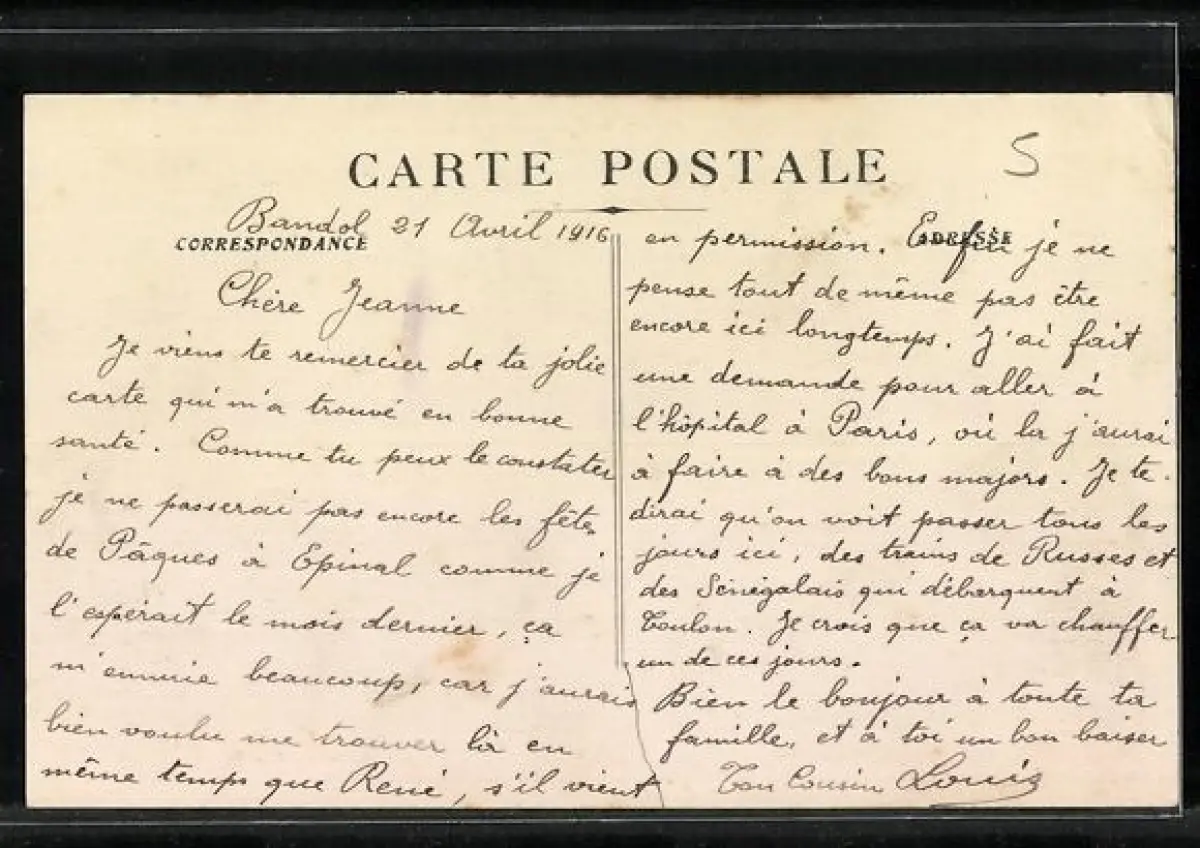 CARTE POSTALE
5
CORRESPONDANCE
ADRESSE
Bandol 21 Avril 1916
Chère Jeanne
Je viens te remercier de ta jolie
carte qui m'a trouvé en bonne
santé. Comme tu peux le constater
je ne passerai pas encore les fêtes
de Pâques à Epinal comme je
l'espérait le mois dernier, ça
m'ennuie beaucoup, car j'aurais
bien voulu me trouver là en
même temps que René, s'il vient
en permission. Enfin je ne
pense tout de même pas être
encore ici longtemps. J'ai fait
une demande pour aller à
l'hôpital à Paris, où la j'aurai
à faire à des bons majors. Je te
dirai qu'on voit passer tous les
jours ici, des trains de Russes et
des Sénégalais qui débarquent à
Toulon. Je crois que ça va chauffer
un de ces jours.
Bien le bonjour à toute ta
famille, et à toi un bon baiser
Ton Cousin Louis